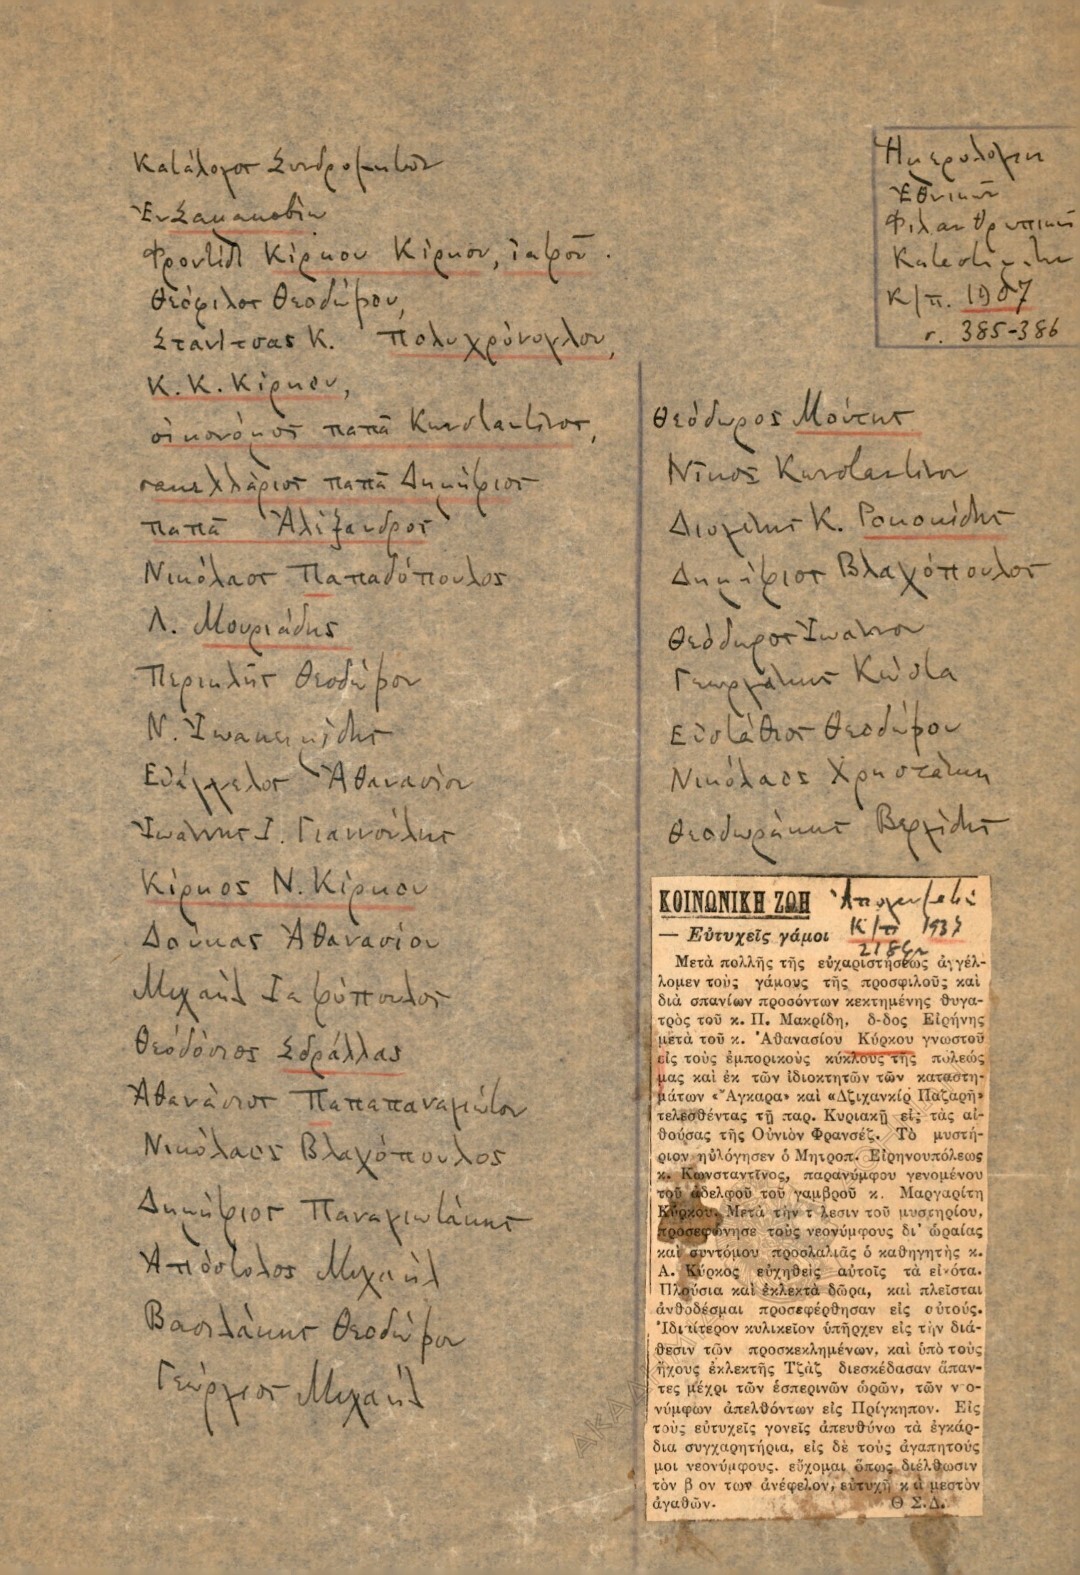 Κατάλογος Συνδρομητῶν
Ἐν Σακακοβίῳ
Φροντίδι Κίρκου Κίρκου, ἰατροῦ.
Θεόφιλος Θεοδώρου,
Στανίτσας Κ. Πολυχρόνογλου,
Κ. Κ. Κίρκου,
οἰκονόμος παπᾶ Κωνσταντῖνος,
σακελλάριος παπᾶ Δημήτριος
παπᾶ Ἀλέξανδρος
Νικόλαος Παπαδόπουλος
Λ. Μουριάδης
Περικλῆς Θεοδώρου
Ν. Ἰωακειμίδης
Εὐάγγελος Ἀθανασίου
Ἰωάννης Ι. Γιαννούλης
Κίρκος Ν. Κίρκου
Δούκας Ἀθανασίου
Μιχαὴλ Ιατρόπουλος
Θεόδόσιος Σδράλλας
Ἀθανάσιος Παπαπαναγιώτου
Νικόλαος Βλαχόπουλος
Δημήτριος Παναγιωτάκης
Ἀπόστολος Μιχαὴλ
Βασιλάκης Θεοδώρου
Γεώργιος Μιχαὴλ
Ἡμερολόγιον
Ἐθνικῶν
Φιλανθρωπικῶν
Καταστημάτων
Κ/π. 1907
σ. 385-386
Θεόδωρος Μούτης
Νῖκος Κωνσταντίνου
Διομήδης Κ. Ροκοκίδης
Δημήτριος Βλαχόπουλος
Θεόδωρος Ἰωάννου
Γεωργάκης Κώστα
Εὐστάθιος Θεοδώρου
Νικόλαος Χρηστάκη
Θεοδωράκης Βεργίδης
ΚΟΙΝΩΝΙΚΗ ΖΩΗ Ἀπογευματινὴ
— Εὐτυχεῖς γάμοι Κ/π 1937
Μετὰ πολλῆς τῆς εὐχαριστήσεως ἀγγέλ-
λομεν τοὺς γάμους τῆς προσφιλοῦς καὶ
διὰ σπανίων προσόντων κεκτημένης θυγα-
τρὸς τοῦ κ. Π. Μακρίδη, δ-δος Εἰρήνης
μετὰ τοῦ κ. Ἀθανασίου Κύρκου γνωστοῦ
εἰς τοὺς ἐμπορικοὺς κύκλους τῆς πόλεώς
μας καὶ ἐκ τῶν ἰδιοκτητῶν τῶν καταστη-
μάτων «Ἄγκαρα» καὶ «Δζιχανκὶρ Παζαρῆ»
τελεσθέντας τῇ παρ. Κυριακῇ εἰς τὰς αἰ-
θούσας τῆς Οὐνιὸν Φρανσέζ. Τὸ μυστή-
ριον ηὐλόγησεν ὁ Μητροπ. Εἰρηνουπόλεως
κ. Κωνσταντῖνος, παρανύμφου γενομένου
τοῦ ἀδελφοῦ τοῦ γαμβροῦ κ. Μαργαρίτη
Κύρκου. Μετὰ τὴν τ λεσιν τοῦ μυστηρίου,
προσεφώνησε τοὺς νεονύμφους δι' ὡραίας
καὶ συντόμου προσλαλιᾶς ὁ καθηγητὴς κ.
Α. Κύρκος εὐχηθεὶς αὐτοῖς τὰ εἰκότα.
Πλούσια καὶ ἐκλεκτὰ δῶρα, καὶ πλεῖσται
ἀνθοδέσμαι προσεφέρθησαν εἰς αὐτούς.
Ἰδιαίτερον κυλικεῖον ὑπῆρχεν εἰς τὴν διά-
θεσιν τῶν προσκεκλημένων, καὶ ὑπὸ τοὺς
ἤχους ἐκλεκτῆς Τζὰζ διεσκέδασαν ἅπαν-
τες μέχρι τῶν ἑσπερινῶν ὡρῶν, τῶν ν ο-
νύμφων ἀπελθόντων εἰς Πρίγκηπον. Εἰς
τοὺς εὐτυχεῖς γονεῖς ἀπευθύνω τὰ ἐγκάρ-
δια συγχαρητήρια, εἰς δὲ τοὺς ἀγαπητούς
μοι νεονύμφους. εὔχομαι ὅπως διέλθωσιν
τὸν β ον των ἀνέφελον, εὐτυχῆ κ ὶ μεστὸν
ἀγαθῶν. Θ Σ.Δ.